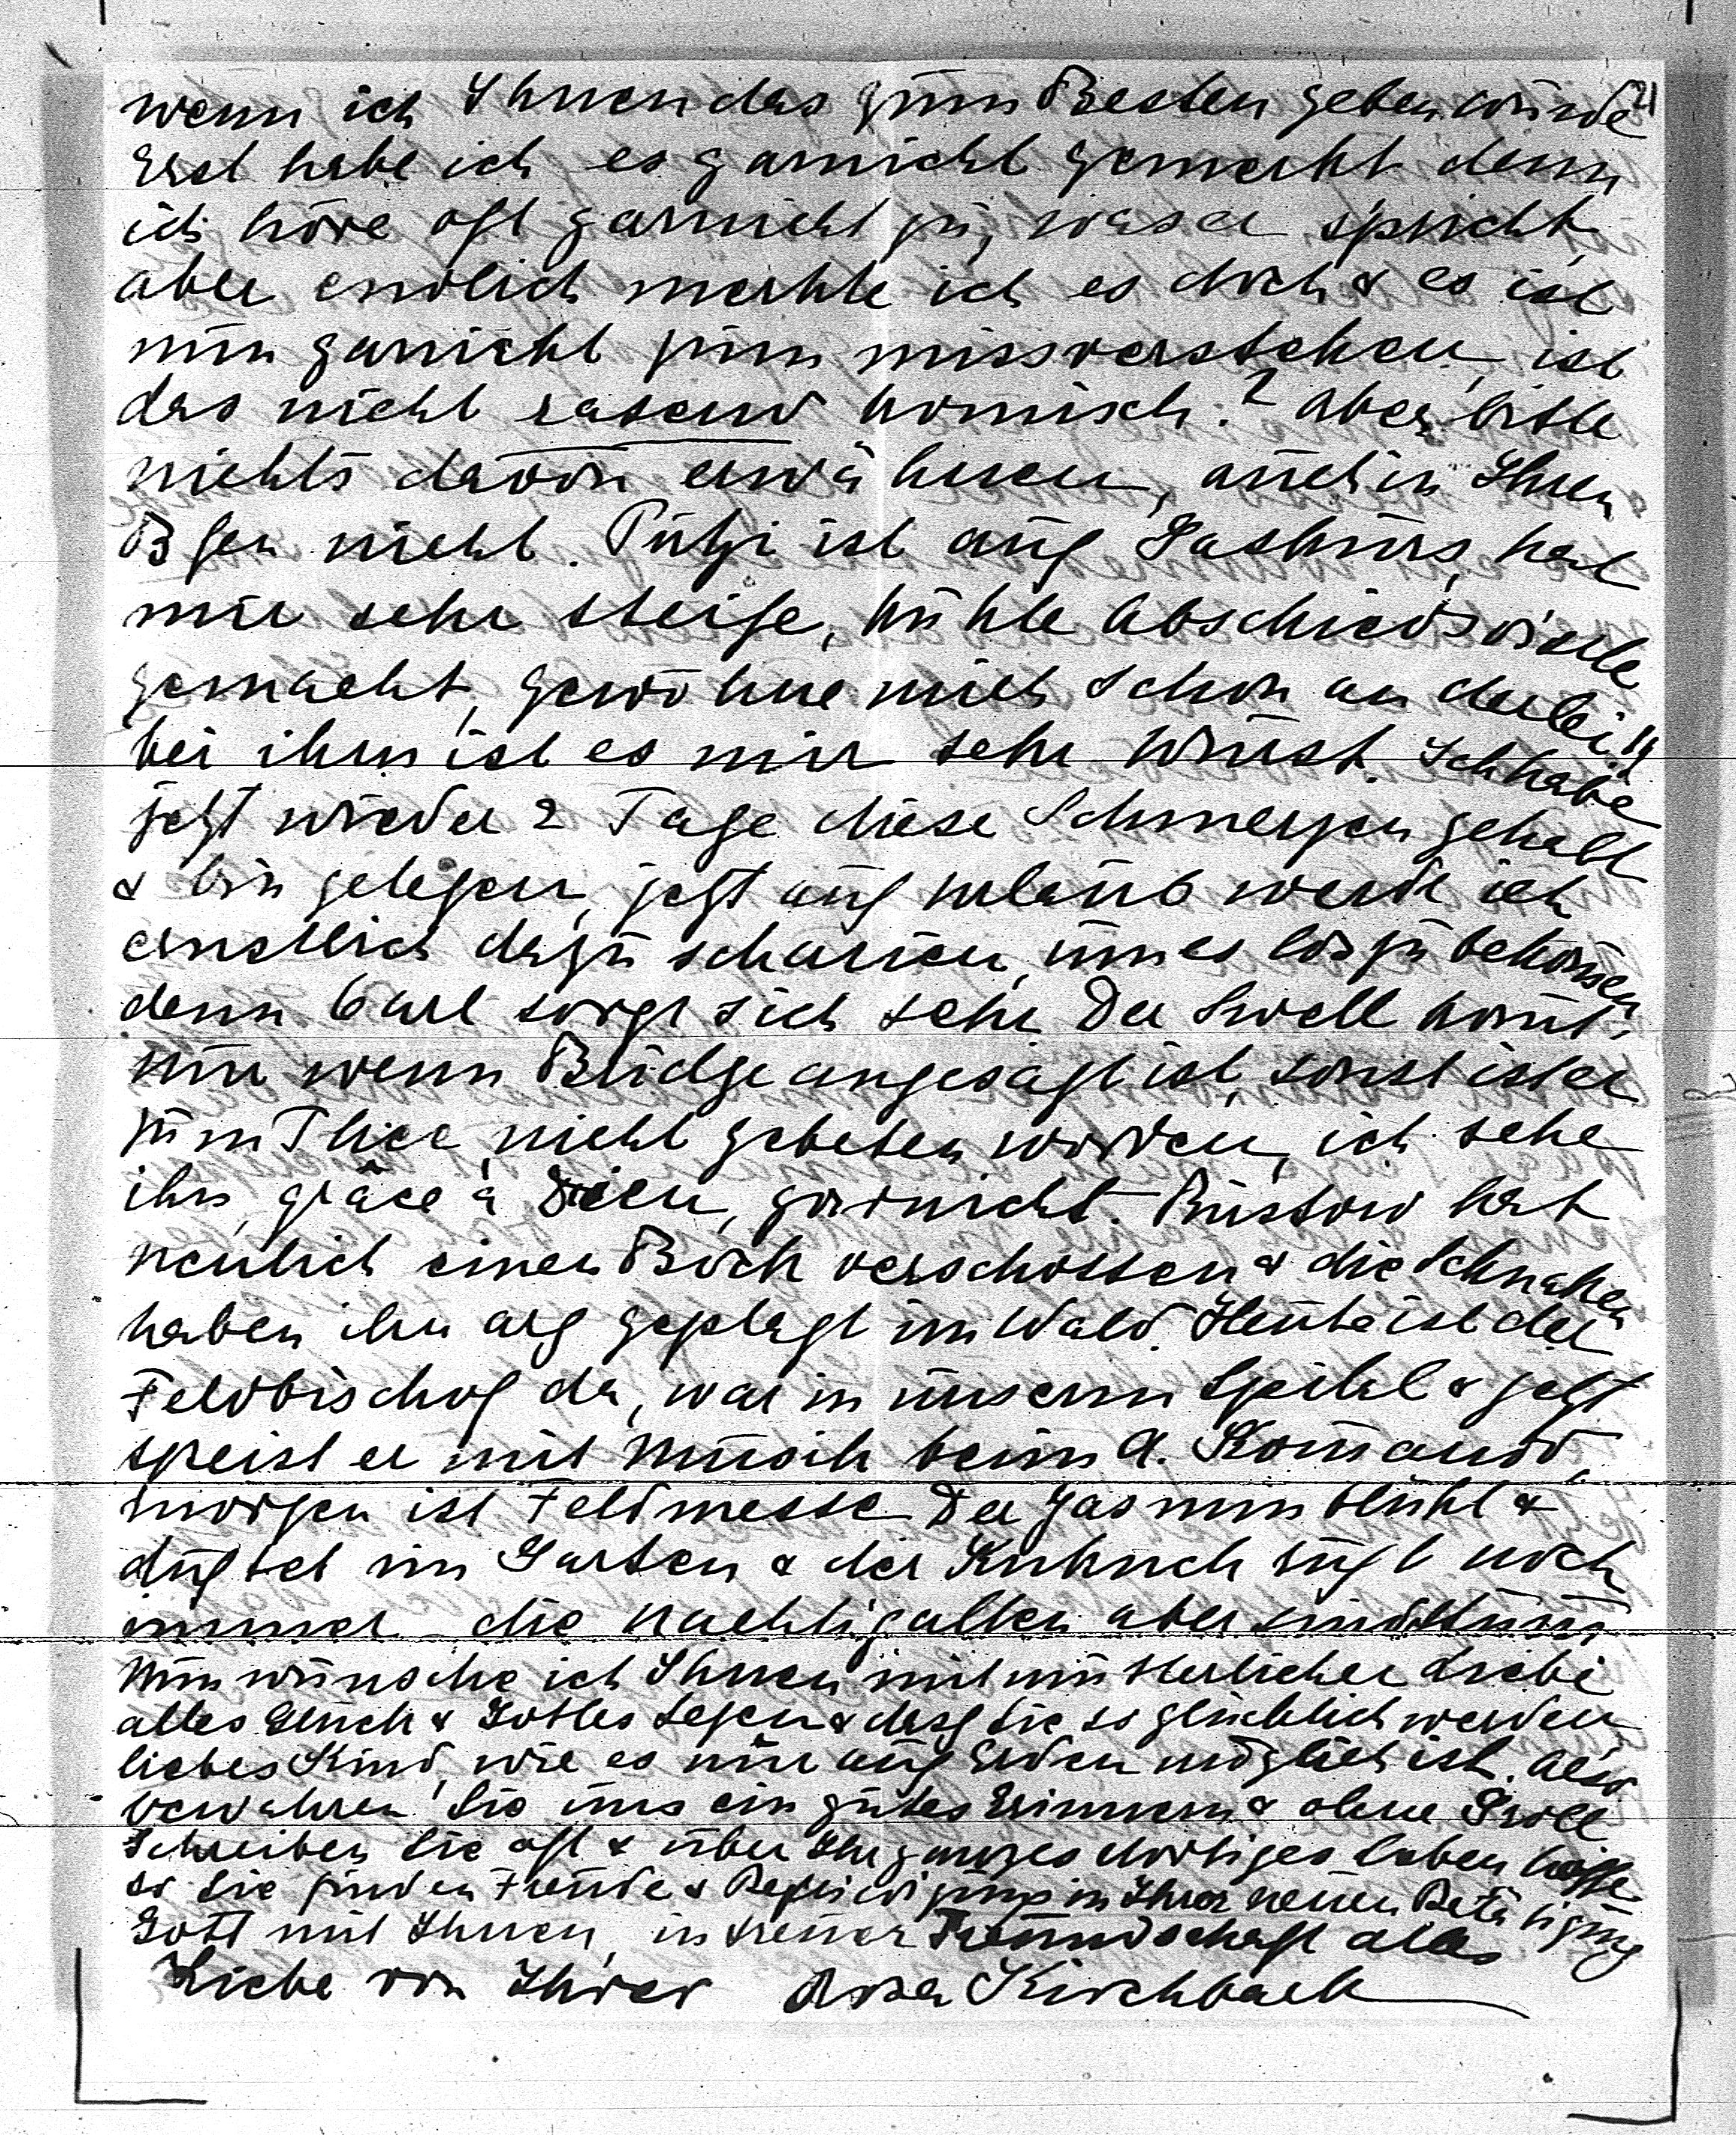 21
wenn ich Ihnen das zum Besten geben würde
Erst habe ich es garnicht gemerkt denn
ich höre oft garnicht zu, was er spricht,
aber endlich merkte ich es doch & es ist
nun garnicht zum missverstehen, ist
das nicht rasend komisch? Aber bitte
nichts davon erwähnen, auch in Ihren
Bfen nicht. Putzi ist auf Gaskurs, hat
mir sehr steife, kühle Abschiedsvisite
gemacht, gewöhne mich schon an derlei!!
bei ihm ist es mir sehr wurst. Ich habe
jetzt wieder 2 Tage diese Schmerzen gehabt
& bin gelegen, jetzt auf Urlaub werde ich
ernstlich dazu schauen, um es los zu bekom̄en,
denn Carl sorgt sich sehr. Der Swell kom̄t
nur wenn Bridge angesagt ist, sonst ist er
zum Thee nicht gebeten worden, ich sehe
ihn, grâce à Dieu, garnicht. Büstow hat
neulich einen Bock verschossen & die Schnaken
haben ihn arg geplagt im Wald. Heute ist der
Feldbischof da, war in unserm Spital & jetzt
speist er mit Musik beim A. Kom̄ando,
morgen ist Feldmesse. Der Jasmin blüht &
duftet im Garten & der Kukuck ruft noch
immer – die Nachtigallen aber sind stum̄.
Nun wünsche ich Ihnen mit mütterlicher Liebe
alles Glück & Gottes Segen & dass Sie so glücklich werden
liebes Kind, wie es nur auf Erden möglich ist. Also
bewahren Sie uns ein gutes Erinnern & ohne Groll
Schreiben Sie oft & über Ihr ganzes dortiges Leben hoffe
so Sie finden Freude & Befriedigung in Ihrer neuen Betätigung
Gott mit Ihnen, in treuer Freundschaft alles
Liebe von Ihrer Kirchbach